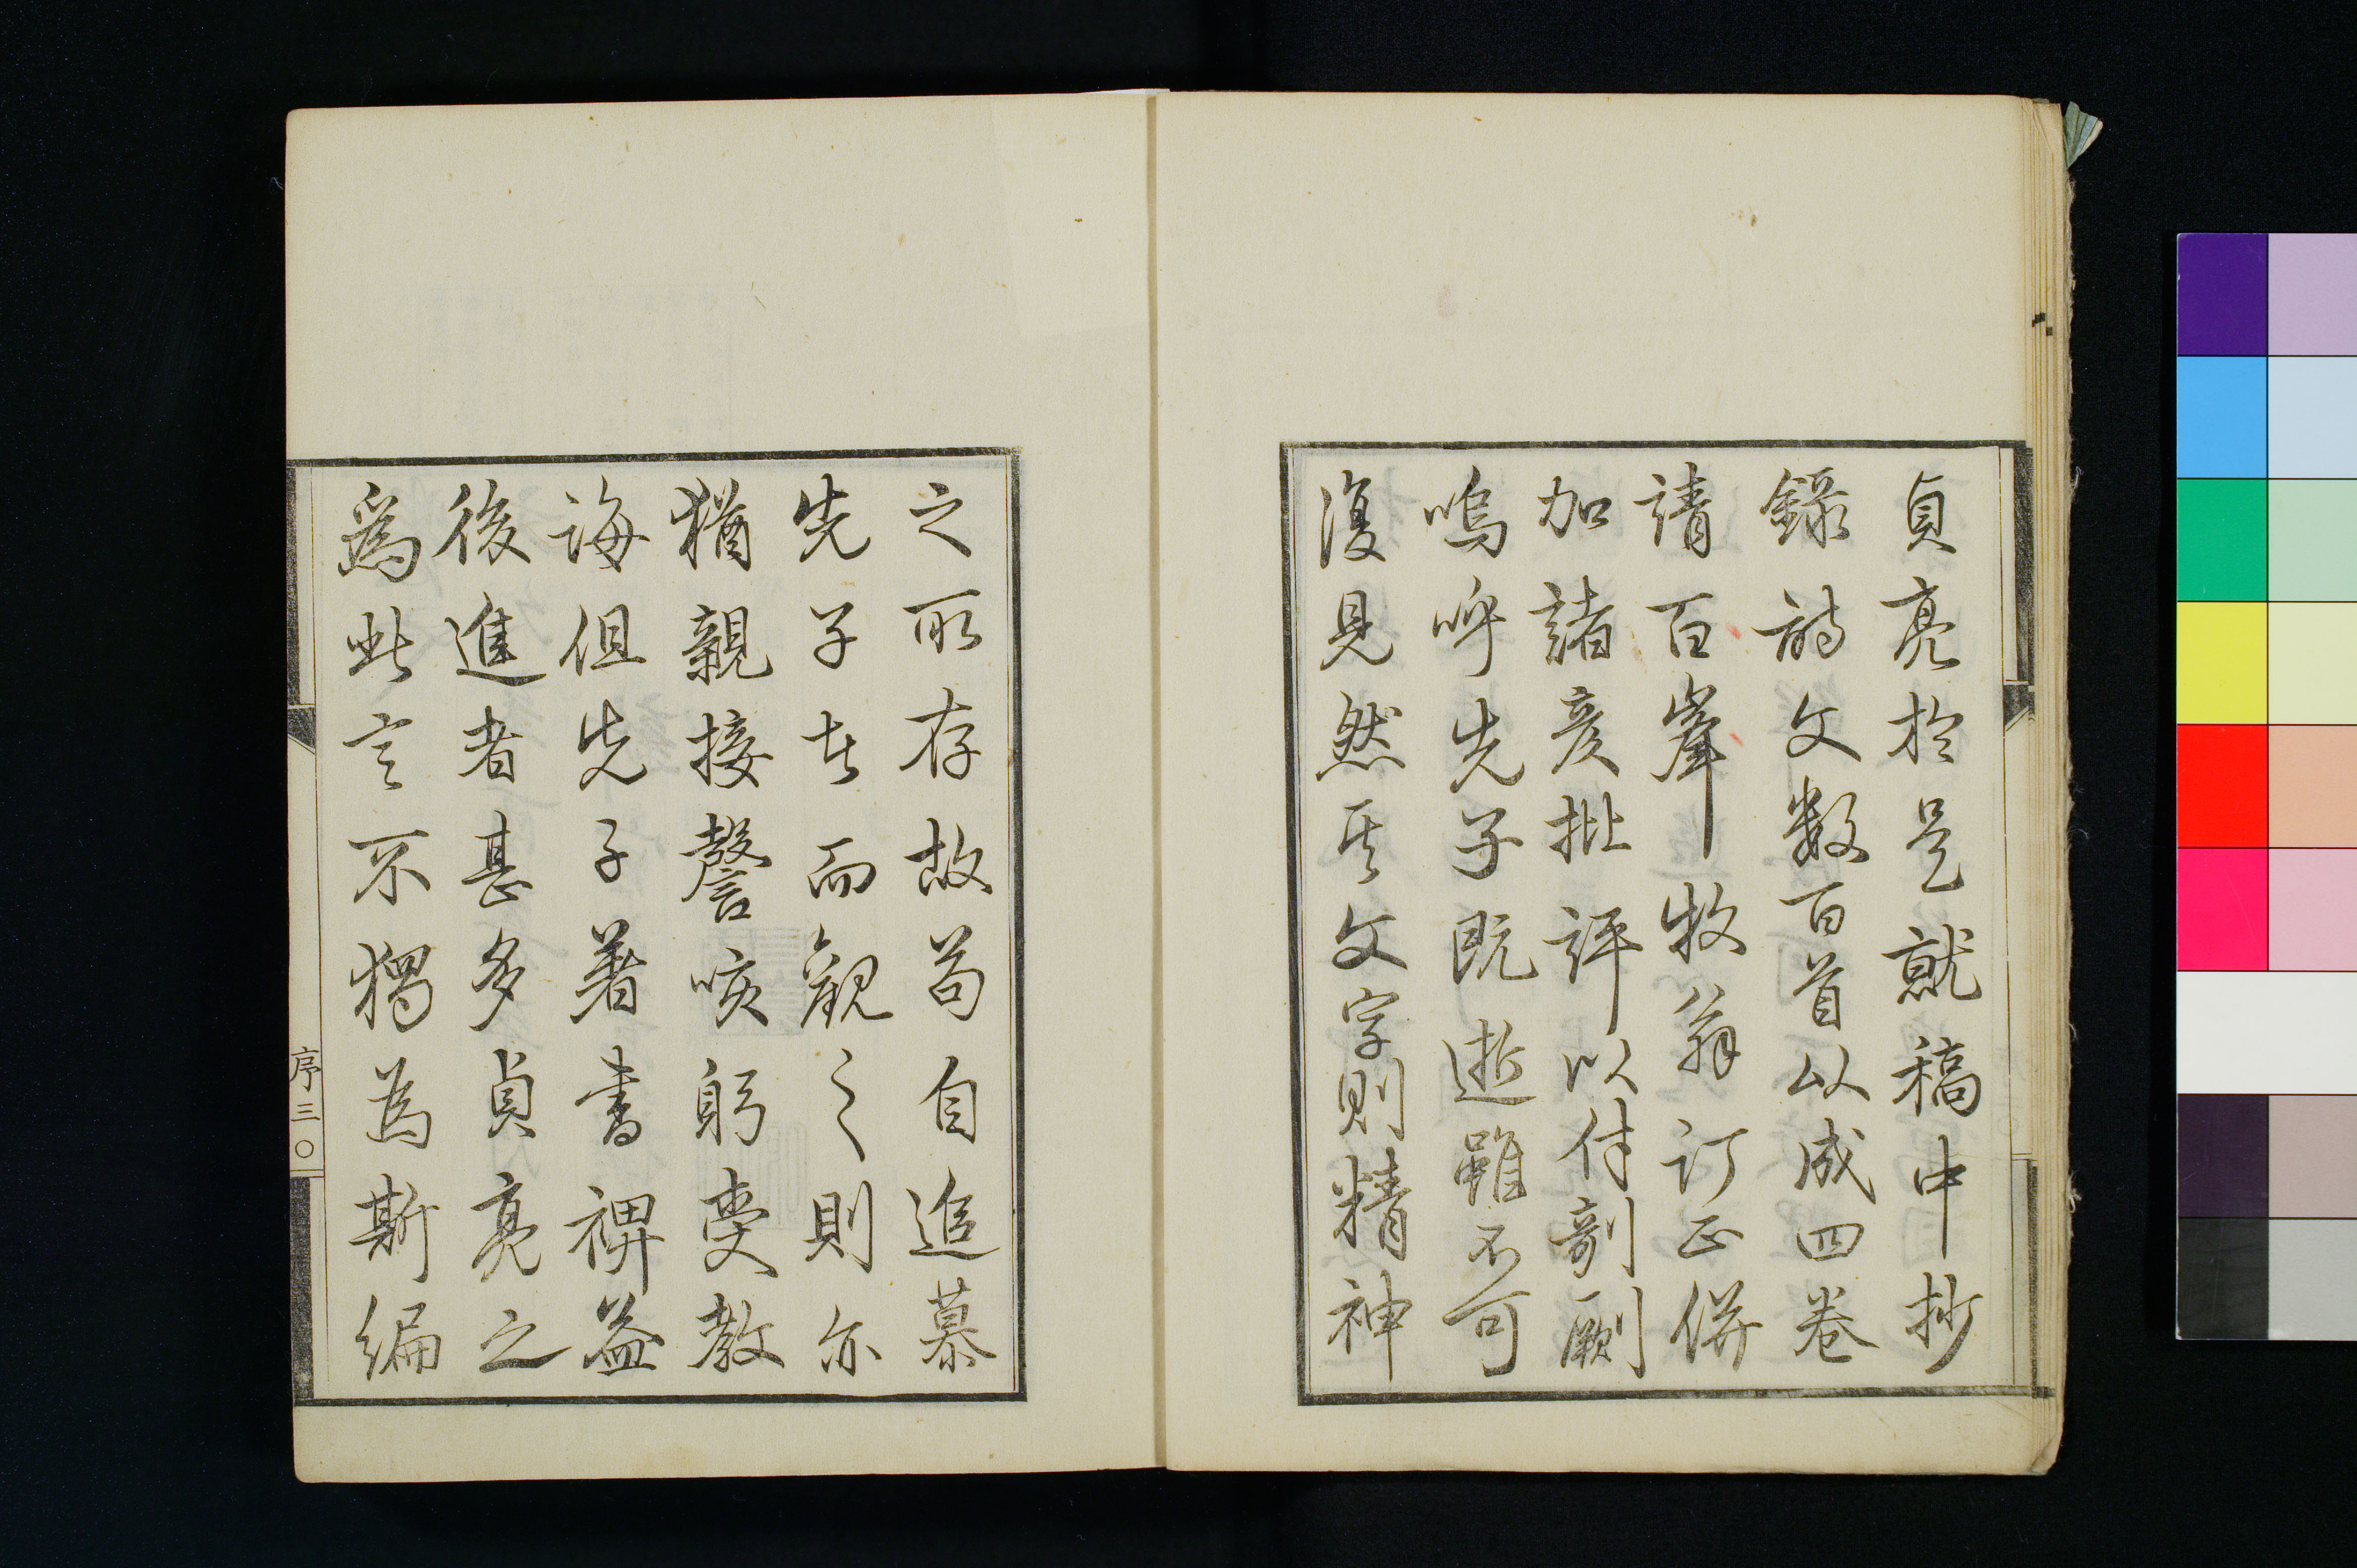 貞亮於是就稿中抄
錄詩文数百首以成四卷
請百峯牧翁訂正併
加諸彦批評以付剞劂
嗚呼先子既逝雖不可
復見然其文字則精神
之所存故苟自追慕
先子者而觀之則亦
猶親接謦咳躬受教
誨但先子著書裨益
後進者甚多貞亮之
爲此言不獨為斯編
序三〇